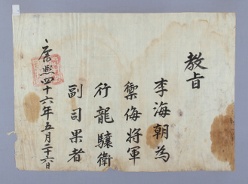 敎旨
李海朝爲
禦侮將軍
行龍驤衛
副司果者
康熙四十六年五月二十六日